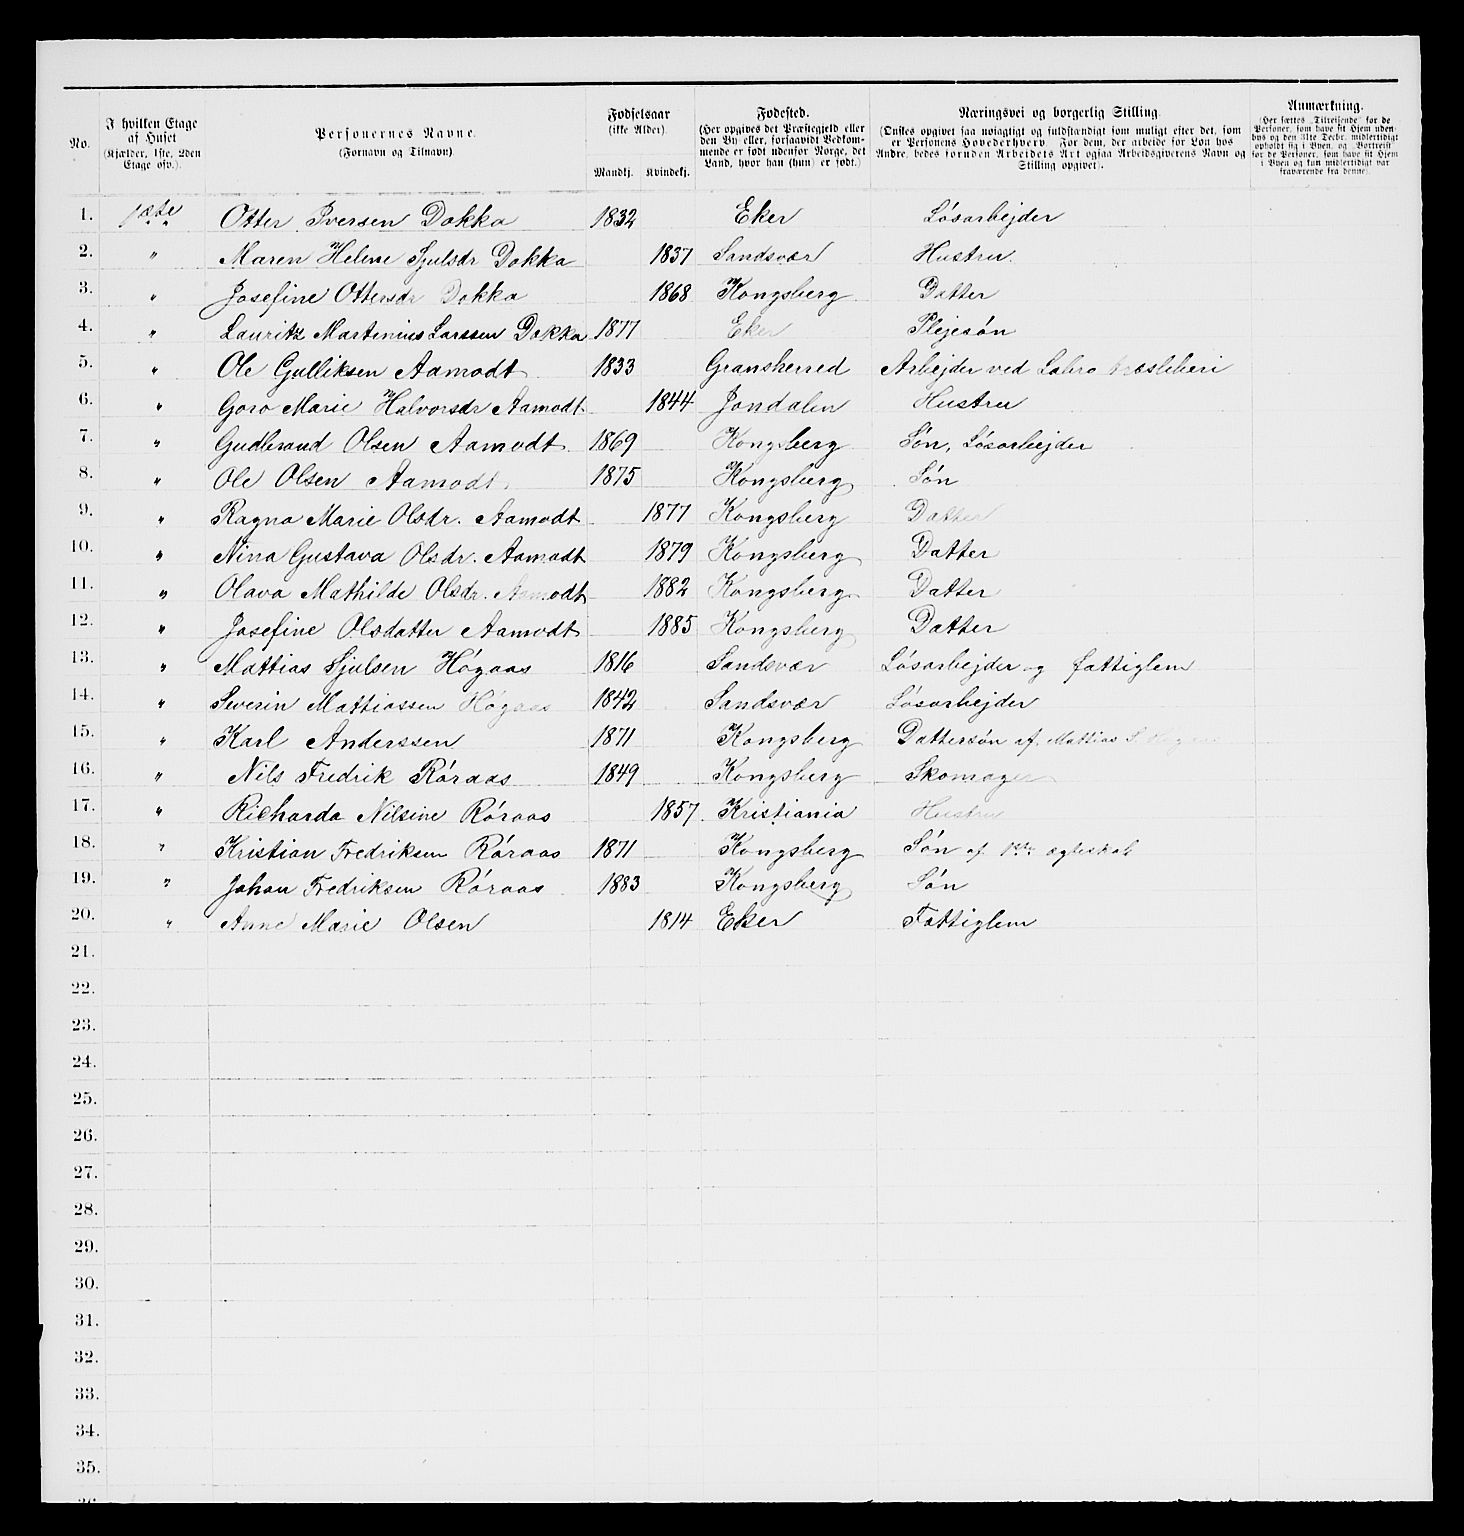 No.
I hvilken Etage af Huset (Kjælder, 1ste, 2den Etage osv.).
Personernes Navne.
(Fornavn og Tilnavn).
Fødselsaar
(ikke Alder).
Mandkj. Kvindekj.
Fødested.
(Her opgives det Præstegjeld eller
den By eller, forsaavidt Vedkom-
mende er født udenfor Norge, det
Land, hvor han (hun) er født.)
Næringsvei og borgerlig Stilling.
(Ønskes opgivet saa nøiagtigt og fuldstændigt som muligt efter det, som
er Personens Hovederhverv. For dem, der arbeide for Løn hos
Andre, bedes foruden Arbeidets Art ogsaa Arbeidsgiverens Navn og
Stilling opgivet).
Anmærkning.
(Her sættes „Tilreisende“ for de
Personer, som have sit Hjem uden-
bys og den 31te Decbr. midlertidigt
opholdt sig i Byen, og „Bortreist“
for de Personer, som have sit Hjem
i Byen og kun midlertidigt var
fraværende fra denne).
1. 1ste Otter Iversen Dokka 1832 Eker Løsarbejder
2. " Maren Helene Sjulsdr Dokka 1837 Sandsvær Hustru.
3. " Josefine Ottersdr Dokka 1868 Kongsberg Datter
4. " Lauritz Martinius Larssen Dokka 1877 Eker Plejesøn
5. " Ole Gulliksen Aamodt 1833 Gransherred Arbejder ved Labro træsliberi
6. " Goro Marie Halvorsdr Aamodt 1844 Jondalen Hustru
7. " Gudbrand Olsen Aamodt 1869 Kongsberg Søn, Løsarbejder
8. " Ole Olsen Aamodt 1875 Kongsberg Søn
9. " Ragna Marie Olsdr. Aamodt 1877 Kongsberg Datter
10. " Nina Gustava Olsdr. Aamodt 1879 Kongsberg Datter
11. " Olava Mathilde Olsdr. Aamodt 1882 Kongsberg Datter
12. " Josefine Olsdatter Aamodt 1885 Kongsberg Datter
13. " Mattias Sjulsen Høgaas 1816 Sandsvær Løsarbejder og fattiglem
14. " Severin Mattiassen Høgaas 1842 Sandsvær Løsarbejder
15. " Karl Anderssen 1871 Kongsberg Dattersøn af Mattias S. Høgaas
16. " Nils Fredrik Røraas 1849 Kongsberg Skomager
17. " Richarda Nilsine Røraas 1857. Kristiania Hustru
18. " Kristian Fredriksen Røraas 1871 Kongsberg Søn af 1ste ægteskab
19. " Johan Fredriksen Røraas 1883 Kongsberg Søn
20. " Anne Marie Olsen 1814 Eker Fattiglem
21.
22.
23.
24.
25.
26.
27.
28.
29.
30.
31.
32.
33.
34.
35.